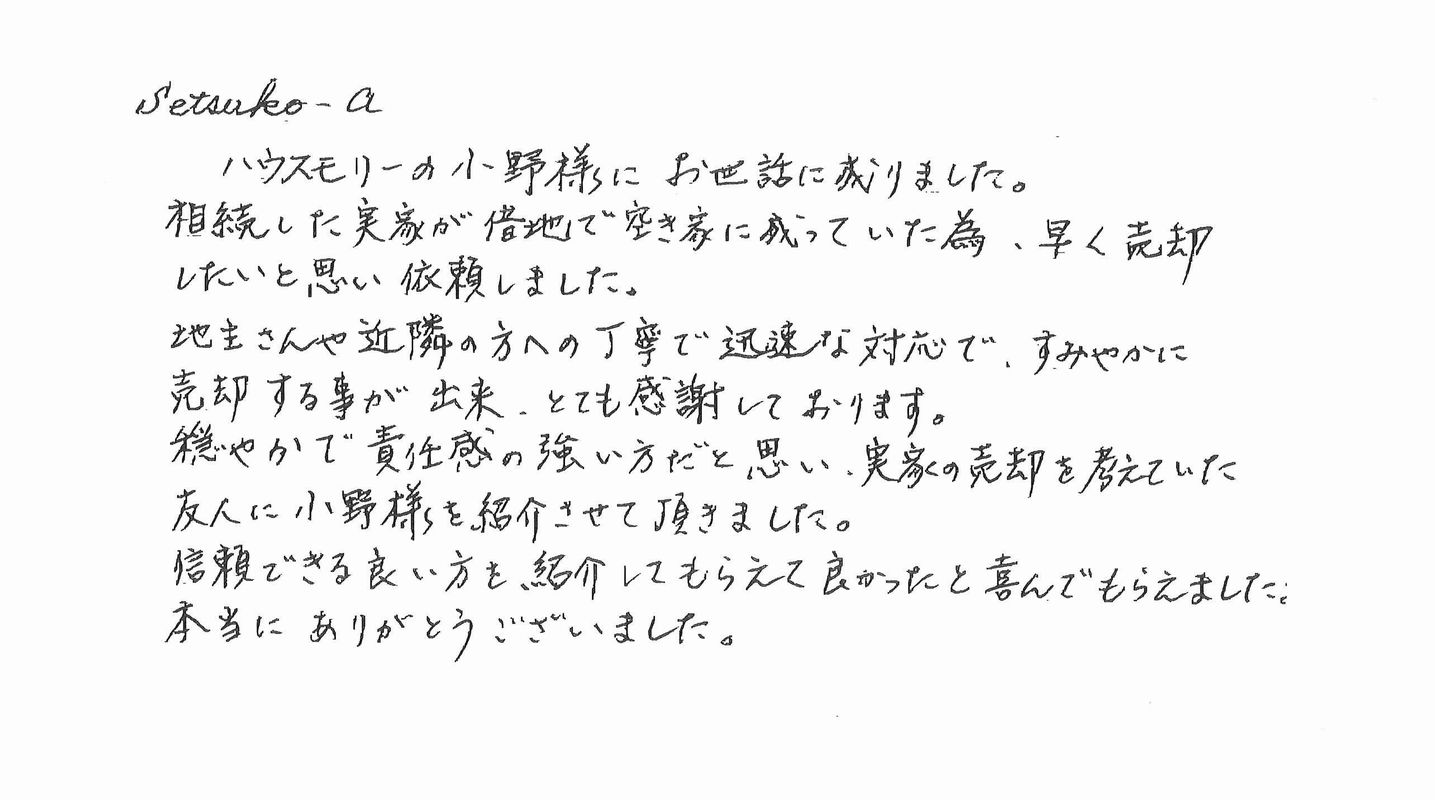 Setsuko-a
ハウスモリーの小野様に お世話に成りました。
相続した実家が借地で空き家に成っていた為、早く売却
したいと思い依頼しました。
地主さんや近隣の方への丁寧で迅速な対応で、すみやかに
売却する事が出来、とても感謝しております。
穏やかで責任感の強い方だと思い、実家の売却を考えていた
友人に小野様を紹介させて頂きました。
信頼できる良い方を、紹介してもらえて良かったと喜んでもらえました。
本当に ありがとうございました。